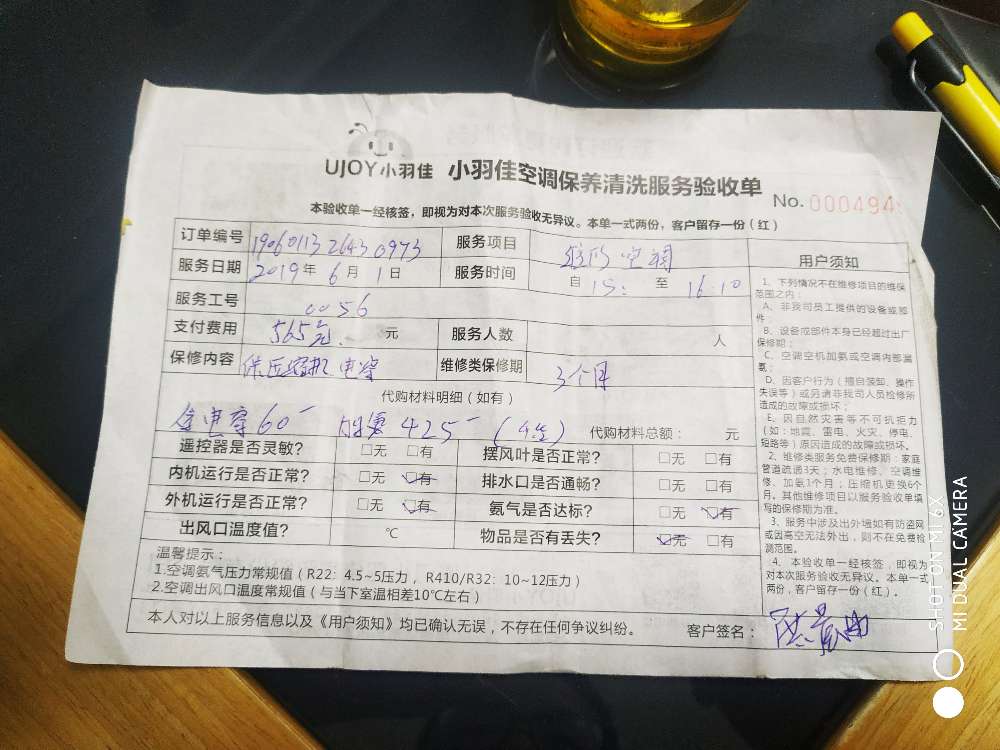 UJOY小羽佳 小羽佳空调保养清洗服务验收单
No. 000494
本验收单一经核签，即视为对本次服务验收无异议。本单一式两份，客户留存一份（红）
订单编号 190601132643 0973 服务项目 空调
服务日期 2019年 6月 1日 服务时间 自 15: 至 16:10
服务工号 0056
支付费用 565元 元 服务人数 人
保修内容 保压缩机 电容 维修类保修期 3个月
代购材料明细（如有）
电容60 425 代购材料总额： 元
遥控器是否灵敏？ □无 □有 摆风叶是否正常？ □无 □有
内机运行是否正常？ □无 □有 排水口是否通畅？ □无 □有
外机运行是否正常？ □无 □有 氨气是否达标？ □无 □有
出风口温度值？ ℃ 物品是否有丢失？ □无 □有
温馨提示：
1.空调氨气压力常规值（R22：4.5~5压力，R410/R32：10~12压力）
2.空调出风口温度常规值（与当下室温相差10℃左右）
本人对以上服务信息以及《用户须知》均已确认无误，不存在任何争议纠纷。 客户签名：
用户须知
1、下列情况不在维修项目的维保
范围之内：
A、非我司员工提供的设备或部
件；
B、设备或部件本身已经超过出厂
保修期；
C、空调空机加氨或空调内部漏
氨；
D、因客户行为（擅自颈卸、操作
失误等）或另请非我司人员检修所
造成的故障或损坏；
E、因自然灾害等不可抗拒力
（如：地震、雷电、火灾、停电、
短路等）原因造成的故障或损坏。
2、维修类服务免费保修期：家庭
管道疏通3天；水电维修、空调维
修、加氨1个月；压缩机更换6个
月。其他维修项目以服务验收单填
写的保修期为准。
3、服务中涉及出外墙如有防盗网
或因高空无法外出，则不在免费检
测范围。
4、本验收单一经核签，即视为
对本次服务验收无异议。本单一式
两份，客户留存一份（红）。
SHOT ON MI 6X
MI DUAL CAMERA